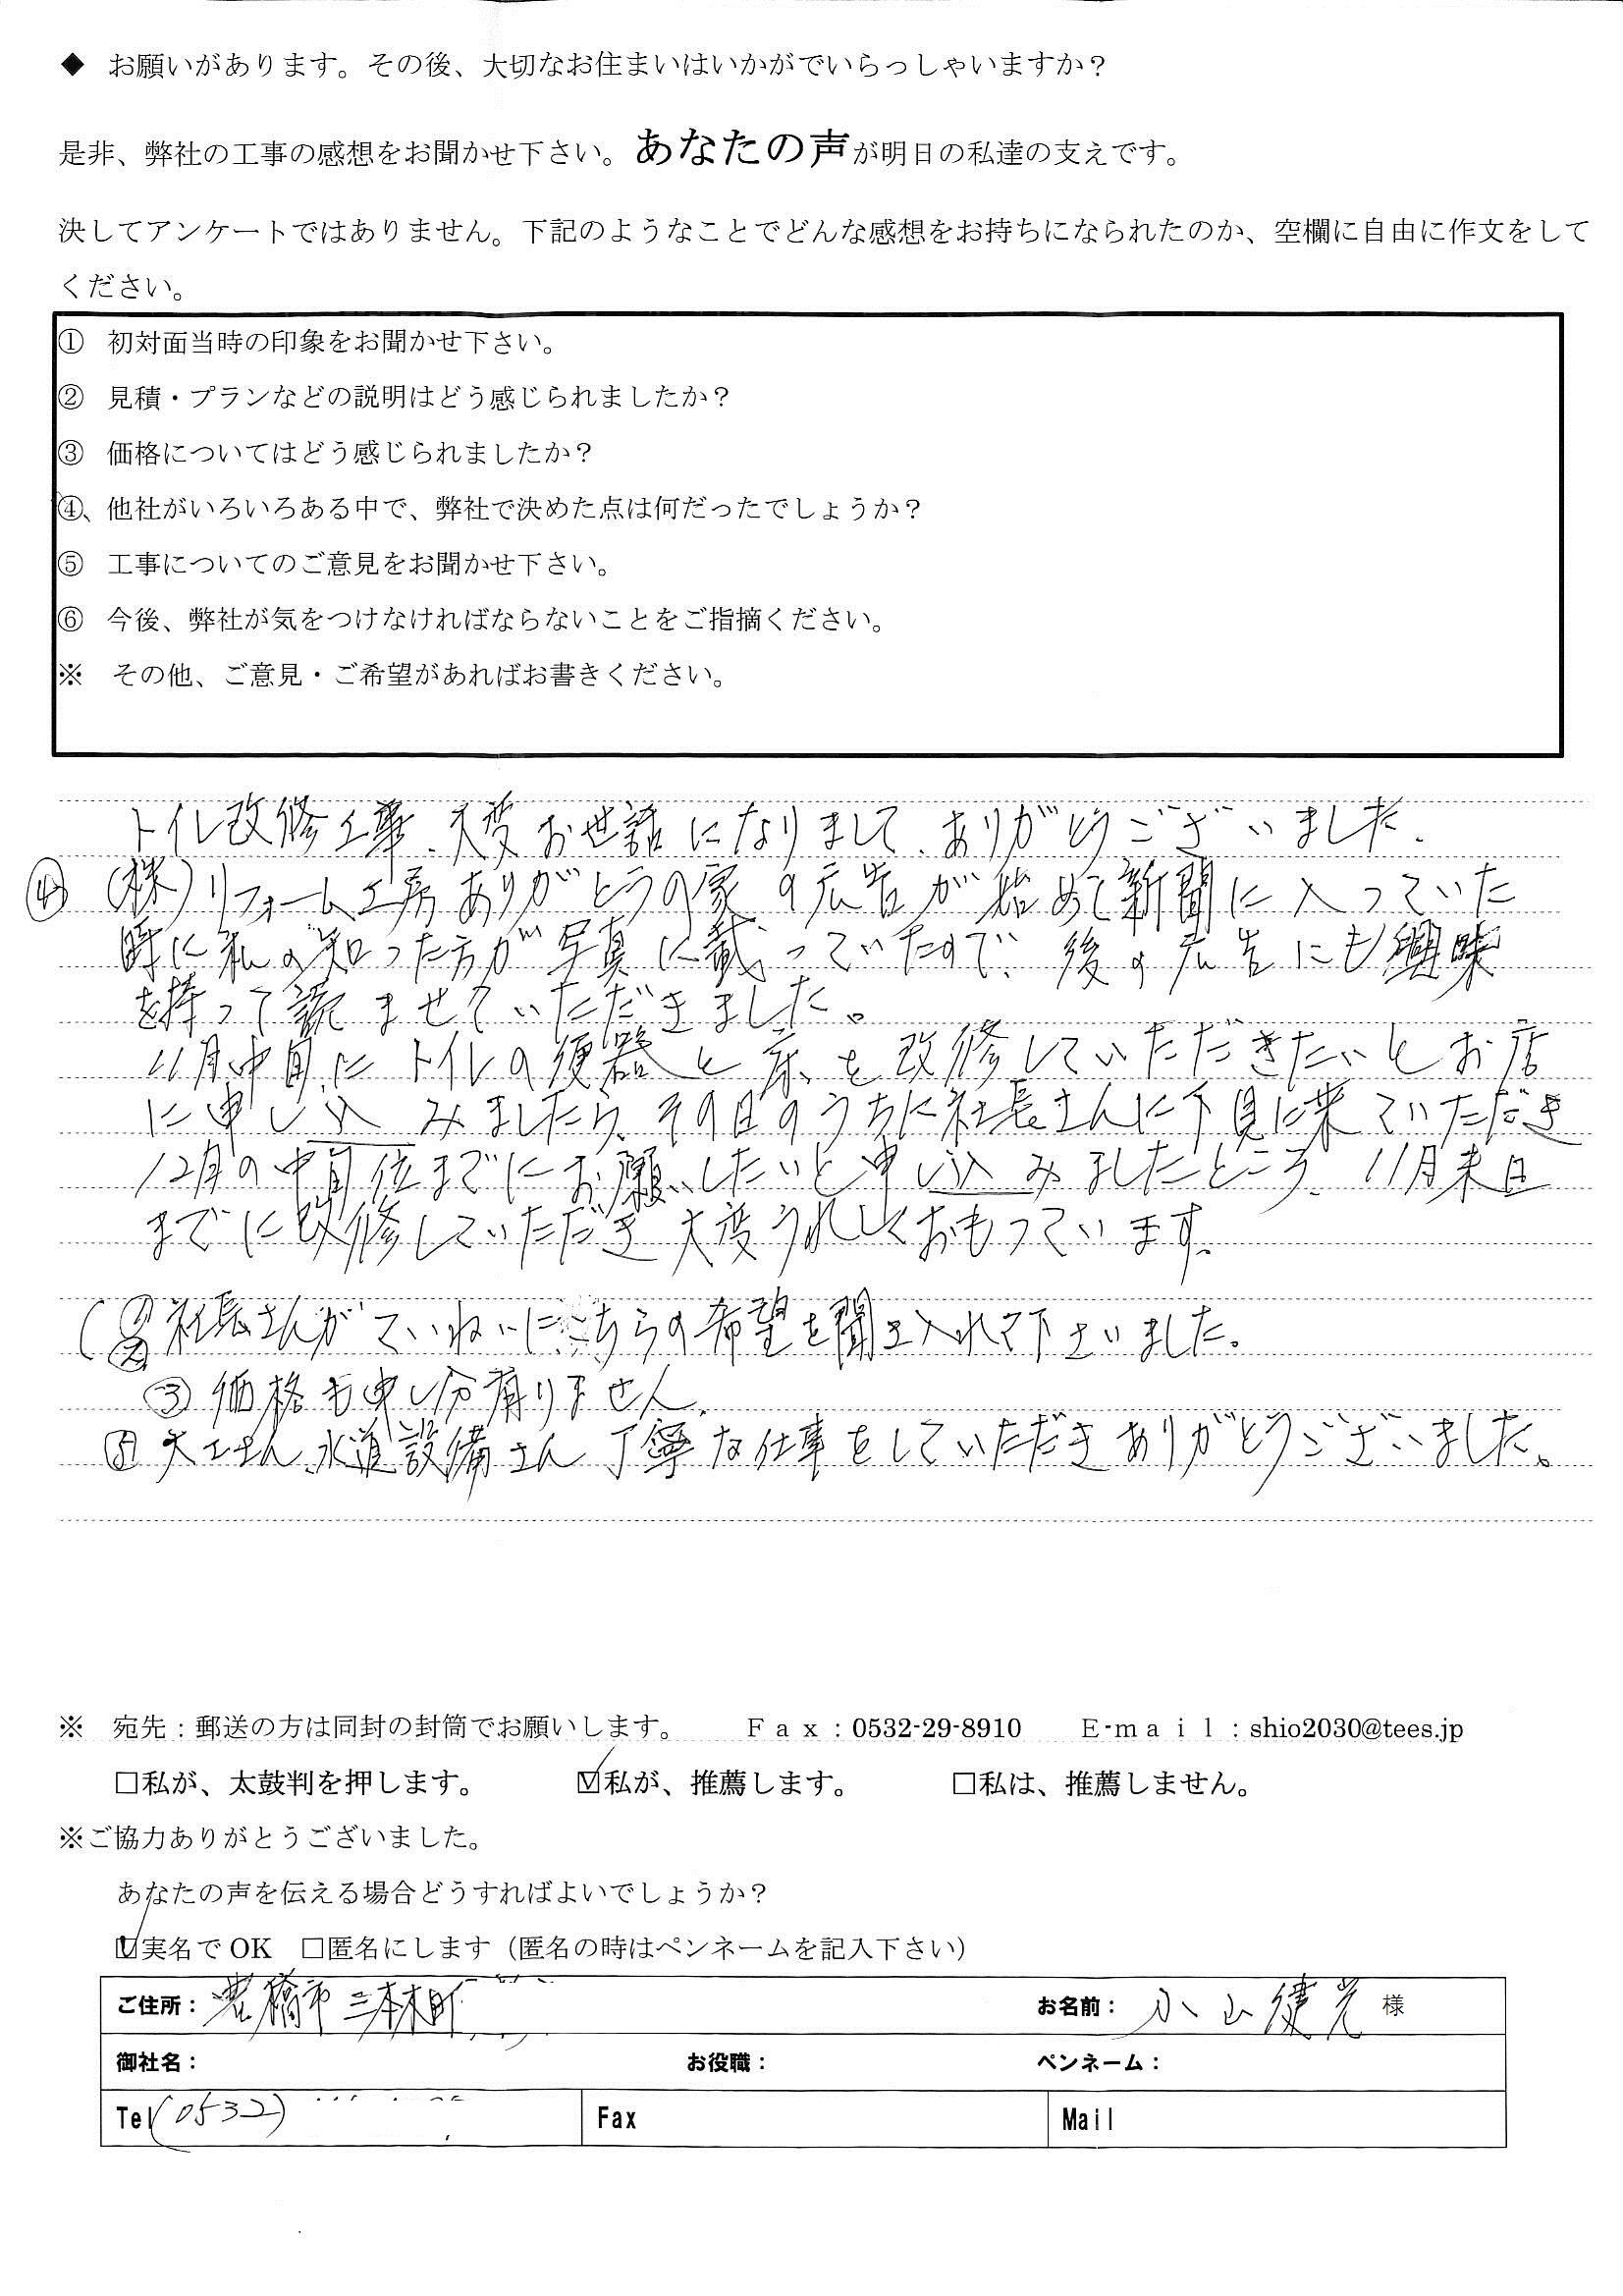 ◆ お願いがあります。その後、大切なお住まいはいかがでいらっしゃいますか？
是非、弊社の工事の感想をお聞かせ下さい。あなたの声が明日の私達の支えです。
決してアンケートではありません。下記のようなことでどんな感想をお持ちになられたのか、空欄に自由に作文をして
ください。
① 初対面当時の印象をお聞かせ下さい。
② 見積・プランなどの説明はどう感じられましたか？
③ 価格についてはどう感じられましたか？
④、他社がいろいろある中で、弊社で決めた点は何だったでしょうか？
⑤ 工事についてのご意見をお聞かせ下さい。
⑥ 今後、弊社が気をつけなければならないことをご指摘ください。
※ その他、ご意見・ご希望があればお書きください。
トイレ改修工事、大変お世話になりまして、ありがとうございました。
④ (株)リフォーム工房ありがとうの家の広告が始めて新聞に入っていた
時に私の知った方が写真に載っていたので、後の広告にも興味
を持って読ませていただきました。
11月中旬にトイレの便器と床を改修していただきたいとお店
に申し込みましたら、その日のうちに社長さんに下見に来ていただき
12月の中旬位までにお願いしたいと申し込みましたところ、11月末日
までに改修していただき大変うれしくおもっています。
(①② 社長さんがていねいにこちらの希望を聞き入れて下さいました。
③ 価格も申し分有りません。
⑤ 大工さん、水道設備さん丁寧な仕事をしていただきありがとうございました。
※ 宛先：郵送の方は同封の封筒でお願いします。 Ｆａｘ：0532-29-8910 Ｅ-ｍａｉｌ：shio2030@tees.jp
□私が、太鼓判を押します。 ☑私が、推薦します。 □私は、推薦しません。
※ご協力ありがとうございました。
あなたの声を伝える場合どうすればよいでしょうか？
☑実名で OK □匿名にします（匿名の時はペンネームを記入下さい）
ご住所： 豊橋市三本木町 お名前： 小山健光 様
御社名： お役職： ペンネーム：
Tel (0532) Fax Mail